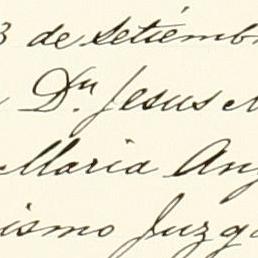 3 de setiemb
Dn Jesus
Maria Ang
ismo Juzg